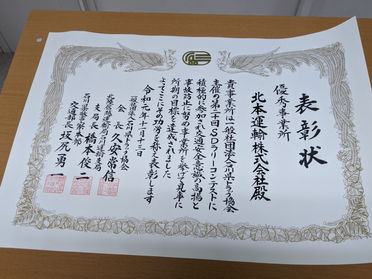 表彰状
優秀事業所
北本運輸株式会社殿
貴事業所は一般社団法人石川県トラック協会
主催の第二十回SDラリーコンテストに
積極的に参加され交通安全意識の高揚と
事故防止に努め事業所を挙げて見事に
所期の目標を達成されました
よってここにその功労を称え表彰します
令和元年十二月十三日
一般社団法人石川県トラック協会
会長 久安常信
北陸信越運輸局石川運輸支局
支局長 橋本俊二
石川県警察本部
交通部長 坂尻勇二